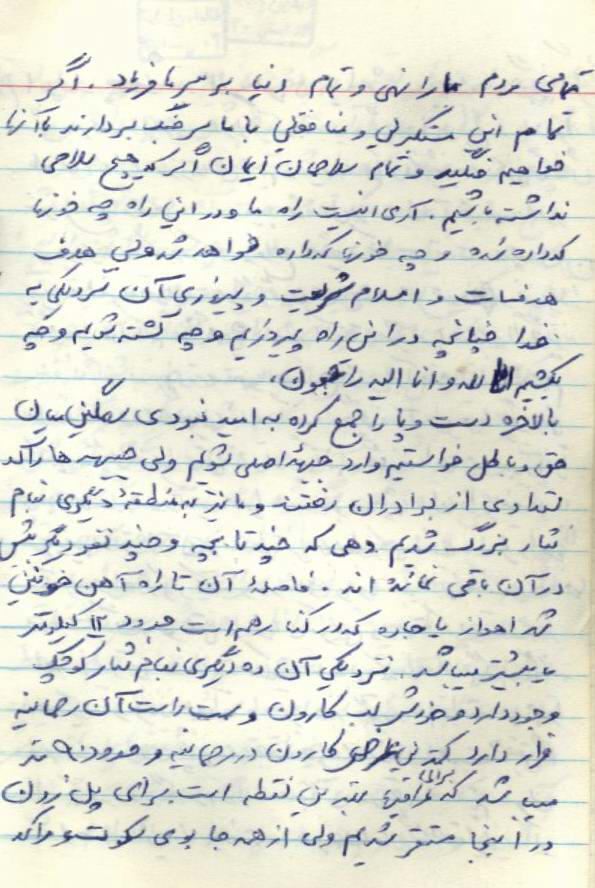 تمامی مردم ما را نهی و تمام دنیا بر سر ما فریاد. اگر
تمام این مستکبرین و منافقین با ما سر جنگ بردارند با آنها
خواهیم جنگید و تمام سلاحمان ایمان اگر که هیچ سلاحی
نداشته باشیم. آری اینست راه ما و در این راه چه خونها
که داده شده و چه خونها که داده خواهد شد ولی هدف
هدفمان و اسلام و پیروزی آن نزدیکی به
خدا چنانچه در این راه پیروزیم و چه کشته شویم و چه
بکشیم لله و انا الیه راجعون.
بالاخره دست و پا را جمع کرده به امید نبودی سهمگین میان
حق و باطل خواستیم وارد جبهۀ اصلی شویم ولی جبهه ها راکد
تعدادی از برادران رفتند و ما نیز به منطقۀ دیگری بنام
بزرگ شدیم دهی که چند تا بچه و چند نفر دیگر بیش
در آن باقی نمانده اند. فاصلۀ آن تا راه آهن خونین
شهر اهواز یا جاده که در کنار هم است حدود ۱۲ کیلومتر
یا بیشتر میباشد. نزدیکی آن ده دیگری بنام کوچک
وجود دارد و خودش لب کارون و سمت راست آن
قرار دارد کمترین عرض کارون در و حدود ۹۰ متر
میباشد که برای عراقیها بهترین نقطه است برای پل زدن
در آنجا مستقر شدیم ولی از همه جا بوی سکوت و راکد